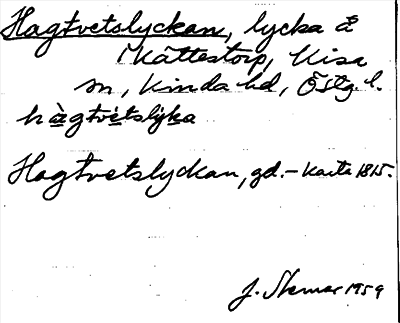 Hagtvetslyckan, lycka å
Kättestorp, Kisa
sn, Kinda hd, Östg. l.
hàgtvétslỳka
Hagtvetslyckan, gd. – karta 1815.
J. 1959